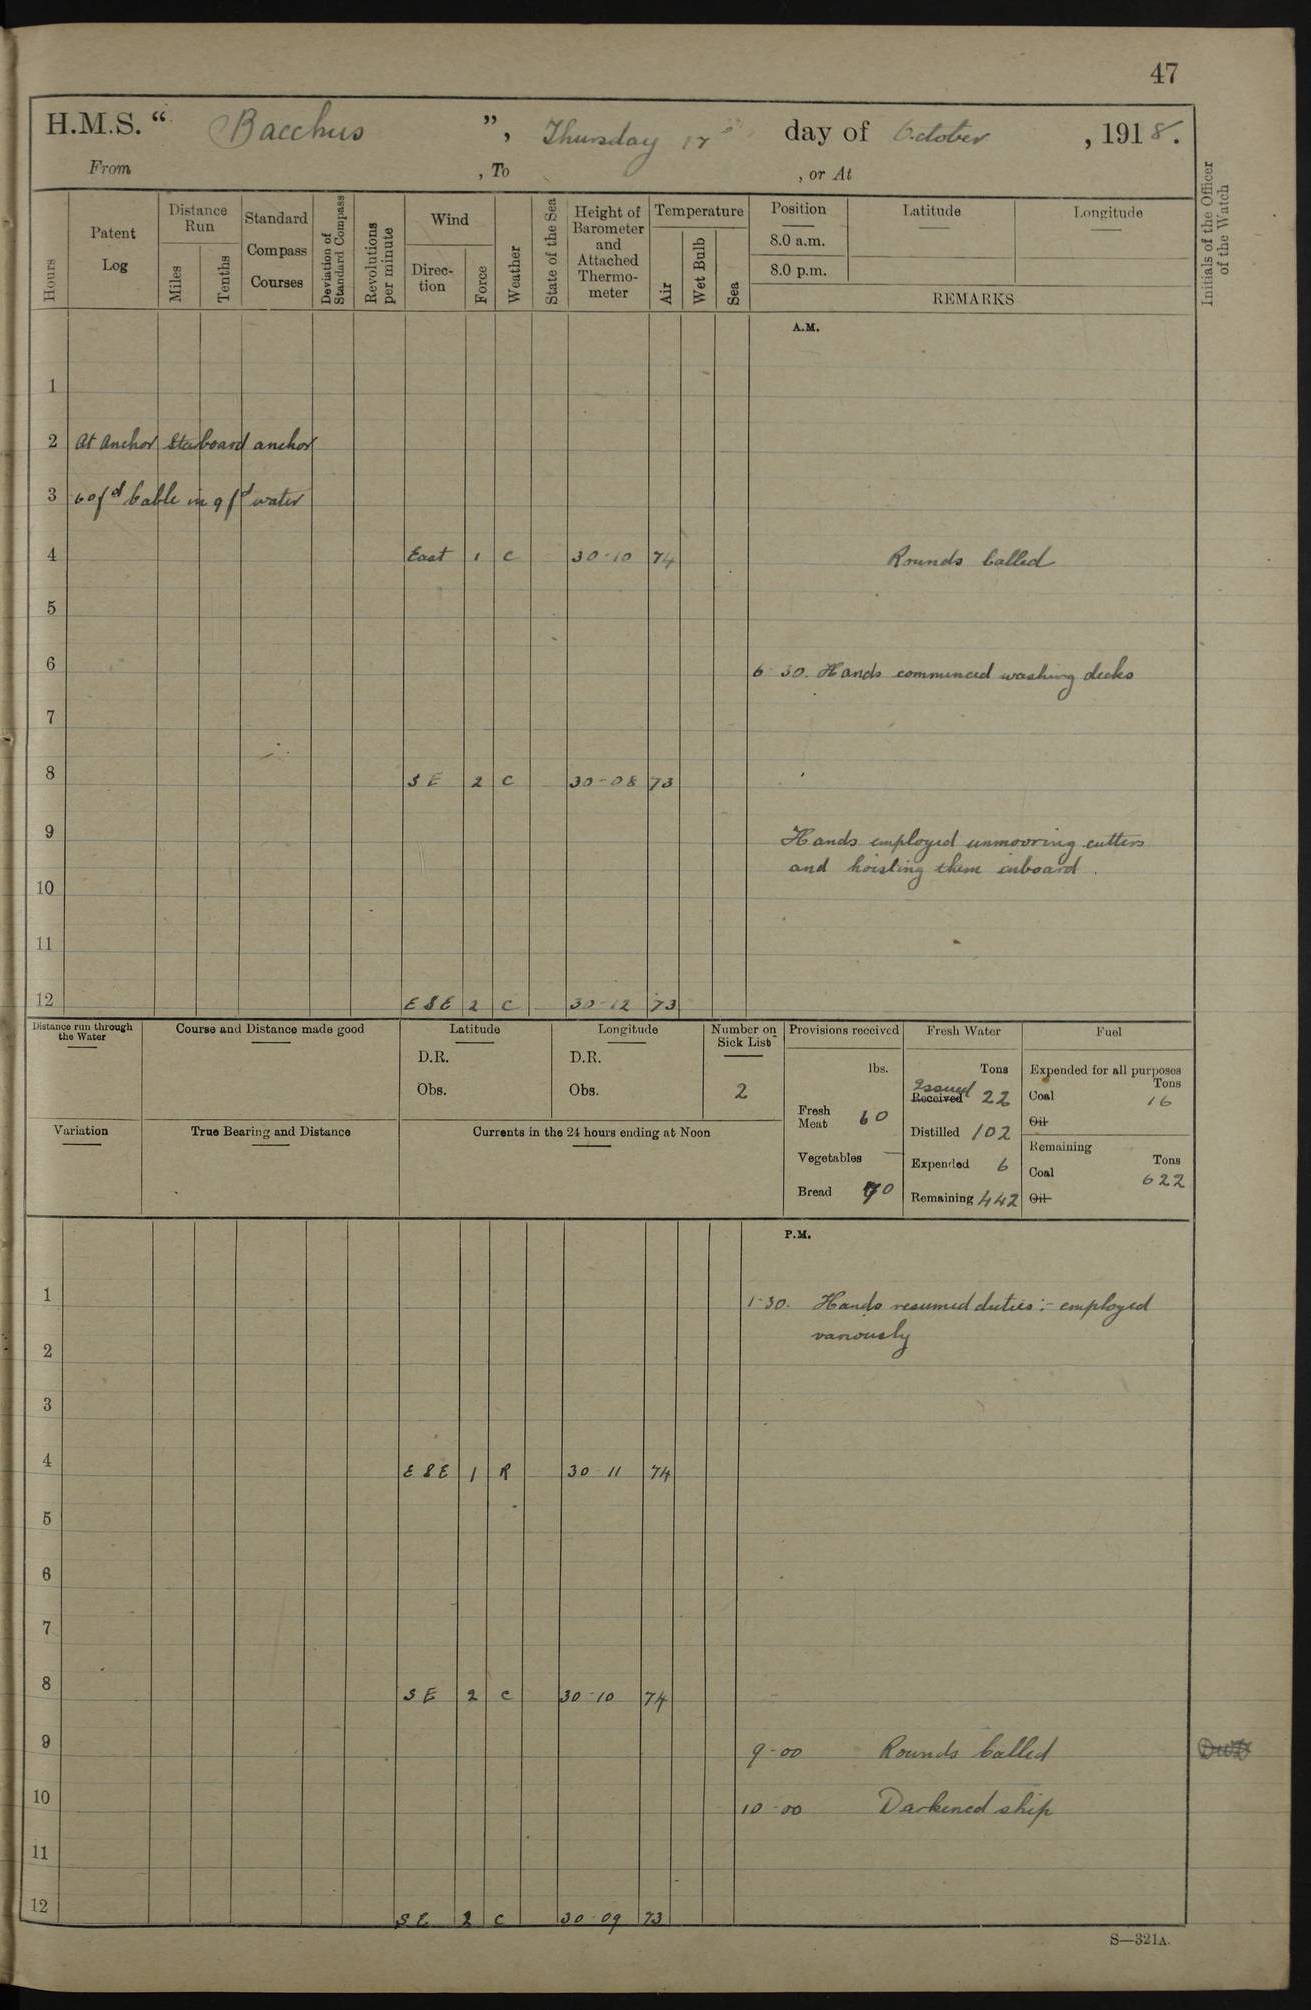 47
H.M.S. " Bacchus ", Thursday 17 day of October, 1918.
From , To , or At
Hours
Patent Log
Distance Run
Miles
Tenths
Standard Compass Courses
Deviation of Standard Compass
Revolutions per minute
Wind
Direc-tion
Force
Weather
State of the Sea
Height of Barometer and Attached Thermo-meter
Temperature
Air
Wet Bulb
Sea
Position
8.0 a.m.
8.0 p.m.
Latitude
Longitude
REMARKS
Initials of the Officer of the Watch
A.M.
1
2 At Anchor Starboard anchor
3 60 fd Cable in 9 fd water
4 East 1 C 30-10 74 Rounds Called
5
6 6 30. Hands commenced washing decks
7
8 S E 2 C 30-08 73
9 Hands employed unmooring cutters
and hoisting them inboard.
10
11
12 E S E 2 C 30-12 73
Distance run through the Water
Course and Distance made good
Latitude
D.R.
Obs.
Longitude
D.R.
Obs.
Number on Sick List
2
Provisions received
lbs.
Fresh Meat 60
Vegetables —
Bread 70
Fresh Water
Tons
Issued
Received 22
Distilled 102
Expended 6
Remaining 442
Fuel
Expended for all purposes
Tons
Coal 16
Oil
Remaining
Tons
Coal 622
Oil
Variation
True Bearing and Distance
Currents in the 24 hours ending at Noon
P.M.
1 1-30. Hands resumed duties:- employed
variously
2
3
4 E S E 1 R 30 11 74
5
6
7
8 S E 2 C 30-10 74
9 9-00 Rounds Called
10 10-00 Darkened ship
11
12 S E 2 C 30-09 73
S—321A.